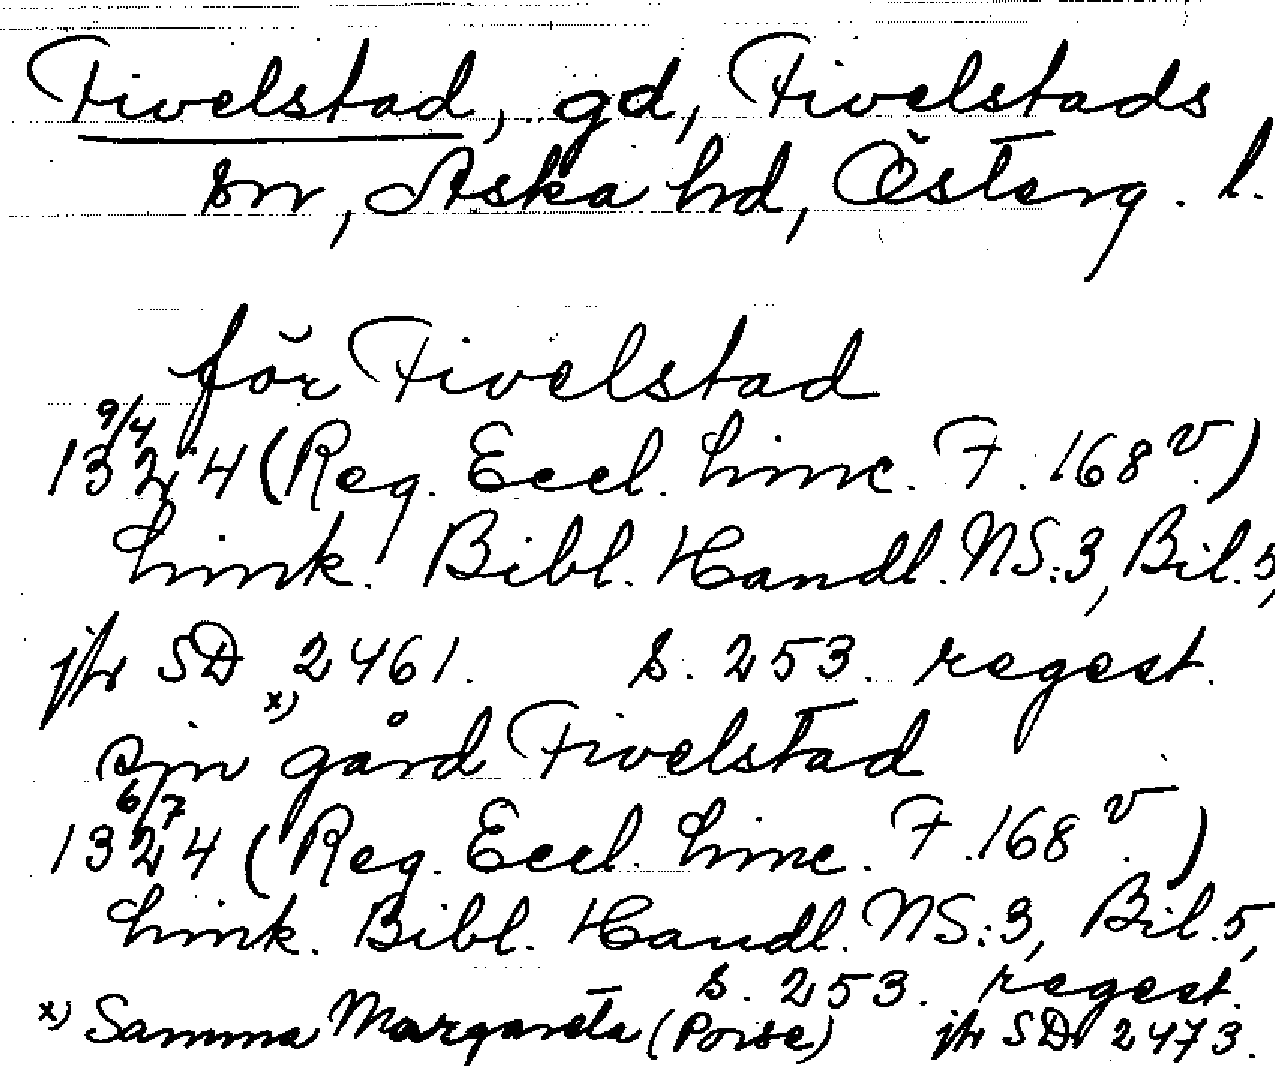 Fivelstad, gd, Fivelstads
sn, Aska hd, Österg. l.
för Fivelstad
9/4
1324 (Reg. Eccl. Linc. F. 168 v.)
Link. Bibl. Handl. NS:3, Bil. 5,
jfr SD 2461. s. 253. regest.
x) sin gård Fivelstad
6/7
1324 (Reg. Eccl. Linc. F. 168 v.)
Link. Bibl. Handl. NS:3, Bil. 5,
s. 253. regest.
x) Samma Margareta (Porse) jfr SD 2473.